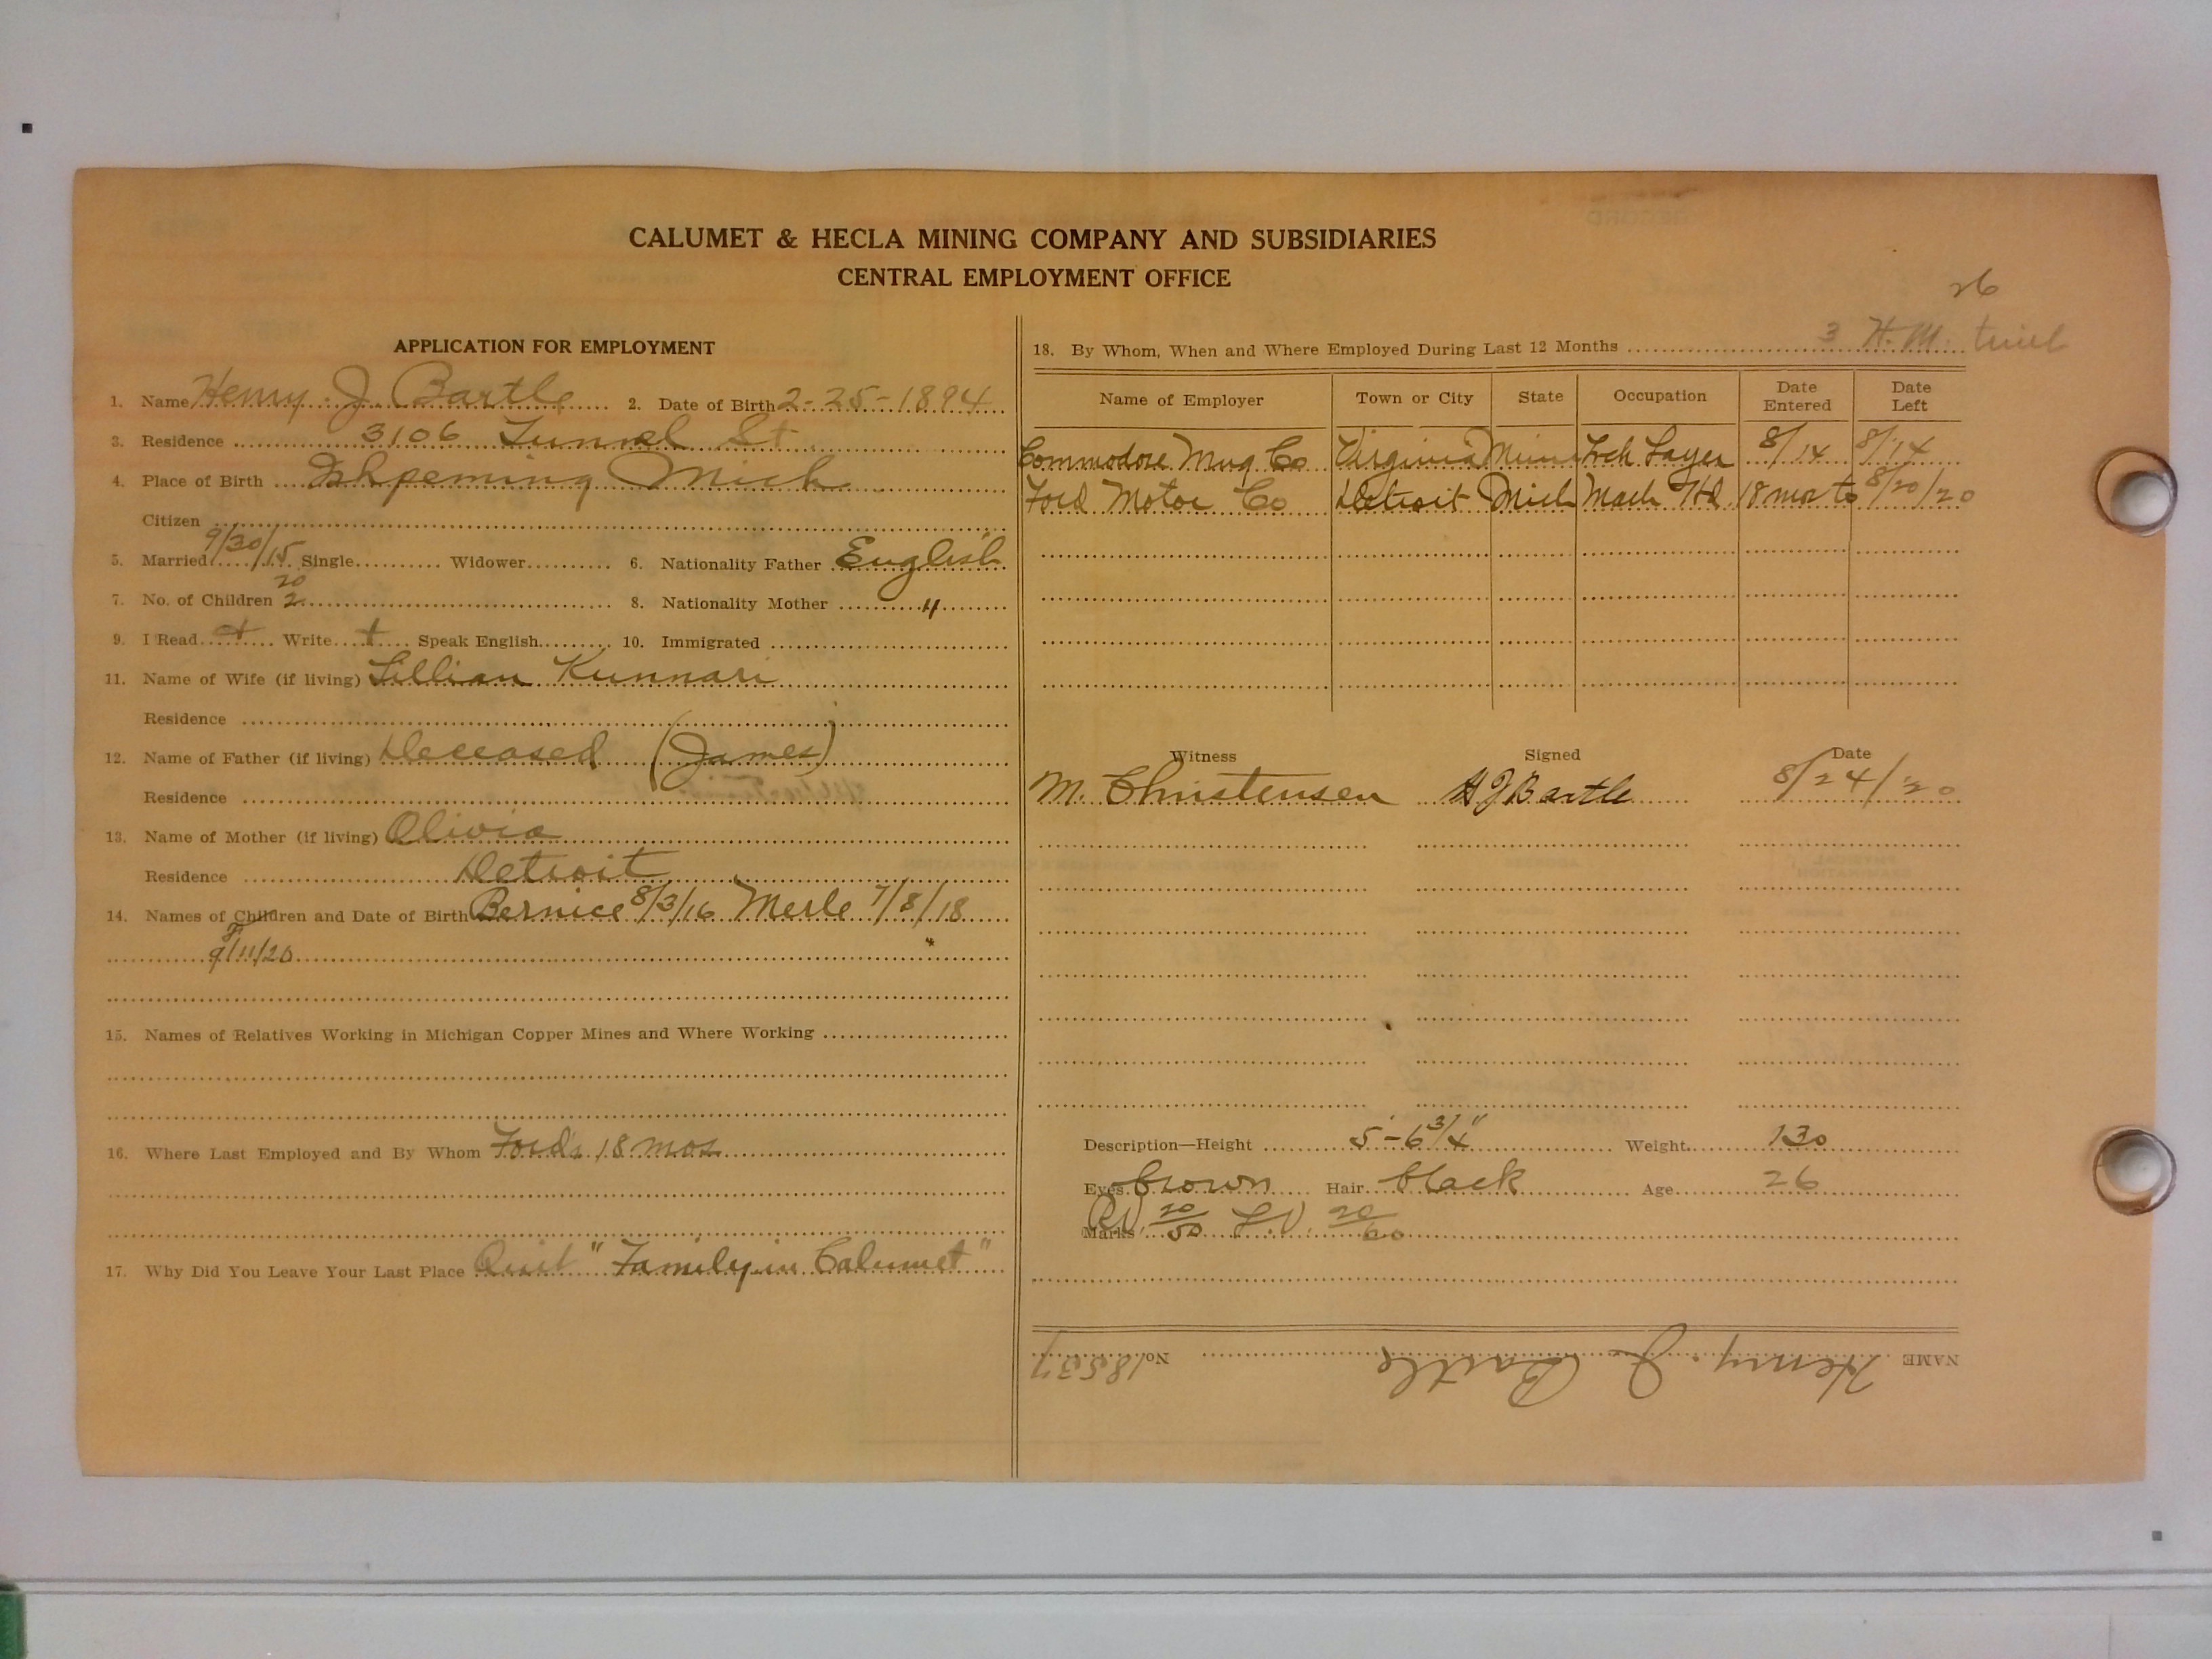 CALUMET & HECLA MINING COMPANY AND SUBSIDIARIES
CENTRAL EMPLOYMENT OFFICE
26
APPLICATION FOR EMPLOYMENT
1. Name Henry J. Bartle 2. Date of Birth 2-25-1894
3. Residence 3106 Tunnel St
4. Place of Birth Ishpeming Mich
Citizen
5. Married 9/30/15 Single Widower 6. Nationality Father English
20
7. No. of Children 2 8. Nationality Mother "
9. I Read + Write + Speak English 10. Immigrated
11. Name of Wife (if living) Lillian Kunnari
Residence
12. Name of Father (if living) Deceased (James)
Residence
13. Name of Mother (if living) Olivia
Residence Detroit
14. Names of Children and Date of Birth Bernice 8/3/16 Merle 7/8/18
9/11/20
15. Names of Relatives Working in Michigan Copper Mines and Where Working
16. Where Last Employed and By Whom Ford's 18 mos
17. Why Did You Leave Your Last Place Quit "Family in Calumet"
18. By Whom, When and Where Employed During Last 12 Months 3 H.M.
Name of Employer Town or City State Occupation Date Entered Date Left
Commodore Mng Co Virginia Minn Layer 8/14 8/14
Ford Motor Co Detroit Mich Mach Hd 18 mos to 8/20/20
Witness Signed Date
M. Christensen H J Bartle 8/24/20
Description—Height 5'-6 3/4" Weight 130
Eyes brown Hair black Age 26
Marks R.V. 20/50 L.V. 20/60
NAME Henry J. Bartle No. 18537